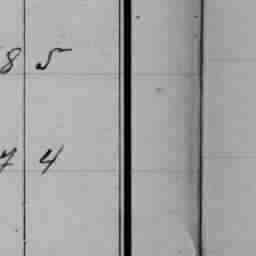 8 5
7 4